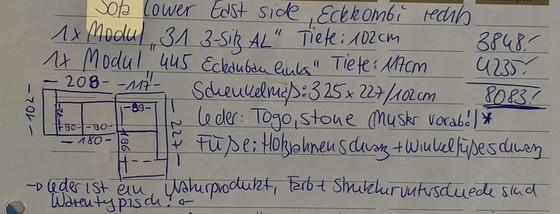 Sofa lower East side, Eckkombi rechts
1x Modul "31 3-Sitz AL" Tiefe: 102cm 3848.-
1x Modul "445 Eckanbau links" Tiefe: 117cm 4235.-
- 208 - - 117 - Schenkelmaß: 325 x 227/102cm 8083.-
- 102 - - 89 - Leder: Togo, stone (Muster vorab!) *
- 90 - - 90 - 196 - 227 -
- 180 - Füße: schwarz + Winkelfüße schwarz
→ Leder ist ein Naturprodukt, Farb + Strukturunterschiede sind
Warentypisch! ←